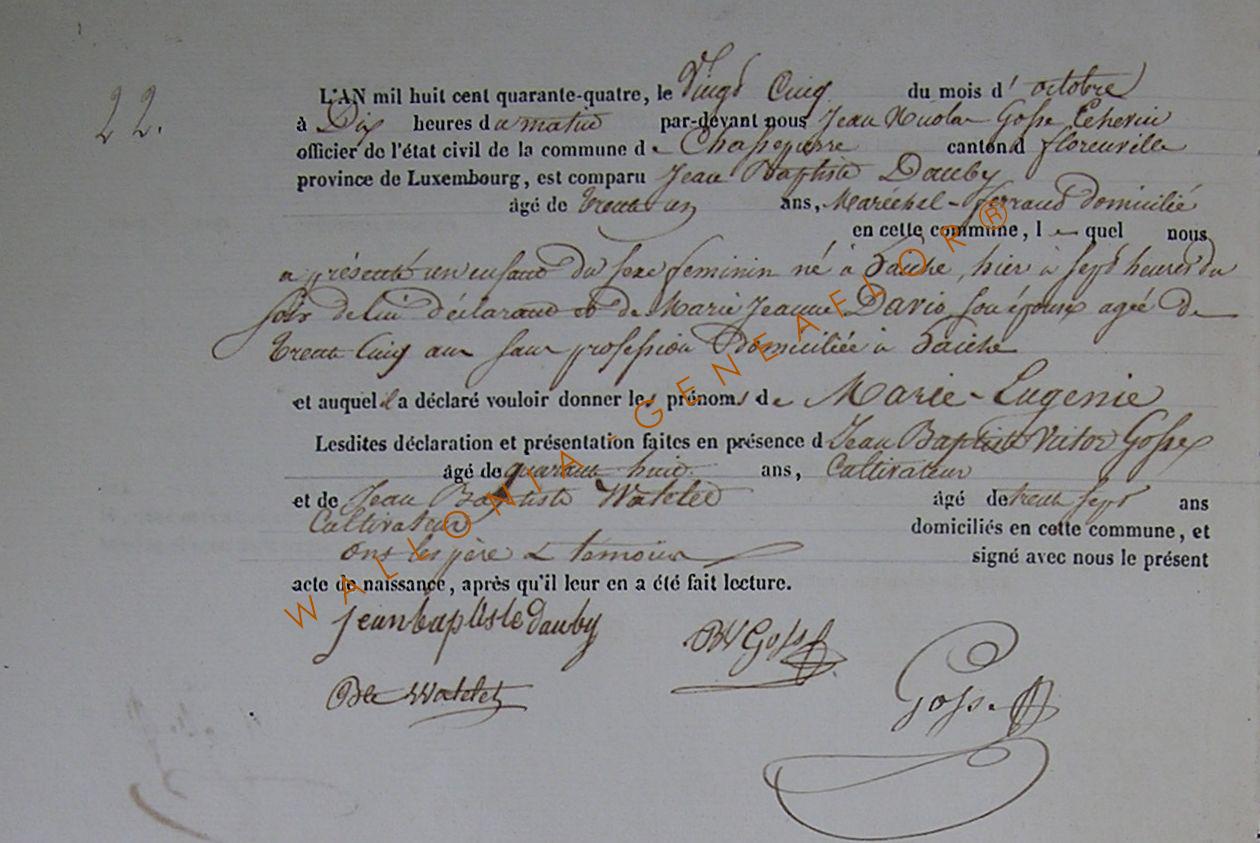 22.
L'AN mil huit cent quarante-quatre, le Vingt Cinq du mois d'octobre
à Dix heures du matin par-devant nous Jean Nicolas Gosse Echevin
officier de l'état civil de la commune de Chassepierre canton d florenville
province de Luxembourg, est comparu Jean Baptiste Dauby
âgé de trente un ans, Maréchal-ferrand domicilié
en cette commune, lequel nous
a présenté un enfant du sexe feminin né à Laiche, hier à sept heures du
soir de lui déclarant et de Marie Jeanne Davio, son épouse agée de
trente Cinq ans sans profession Domiciliée à Laiche
et auquel il a déclaré vouloir donner les prénoms de Marie-Eugenie
Lesdites déclaration et présentation faites en présence d Jean Baptiste Victor Gosse
âgé de quarante huit ans, Cultivateur
et de Jean Baptiste Watelet âgé de trente sept ans
Cultivateur domiciliés en cette commune, et
ont les père & témoins signé avec nous le présent
acte de naissance, après qu'il leur en a été fait lecture.
jean baptiste dauby
BV Gosse
Bte Watelet
Gosse
WALLONIA - GENEAFLOR®